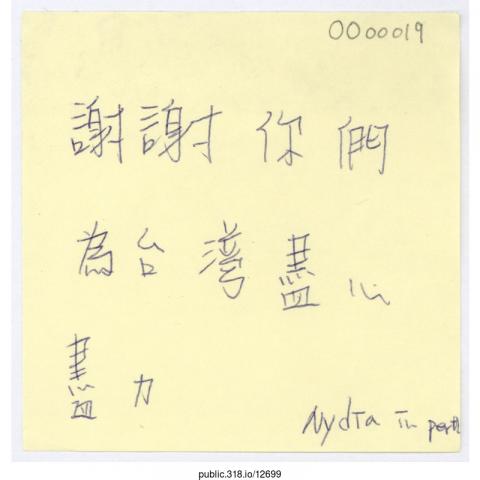 0000019
謝謝你們
為台灣盡心
盡力
Nydia in perth
public.318.io/12699